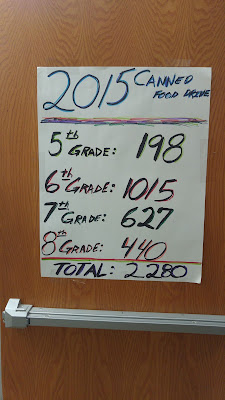 2015 CANNED
FOOD DRIVE
5th GRADE: 198
6th GRADE: 1015
7th GRADE: 627
8th GRADE: 440
TOTAL: 2280